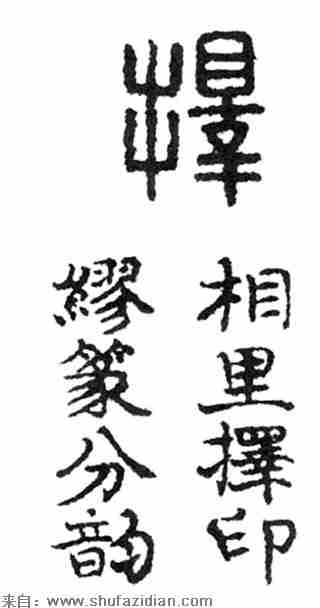 擇
相里擇印
繆篆分韵
来自：www.shufazidian.com